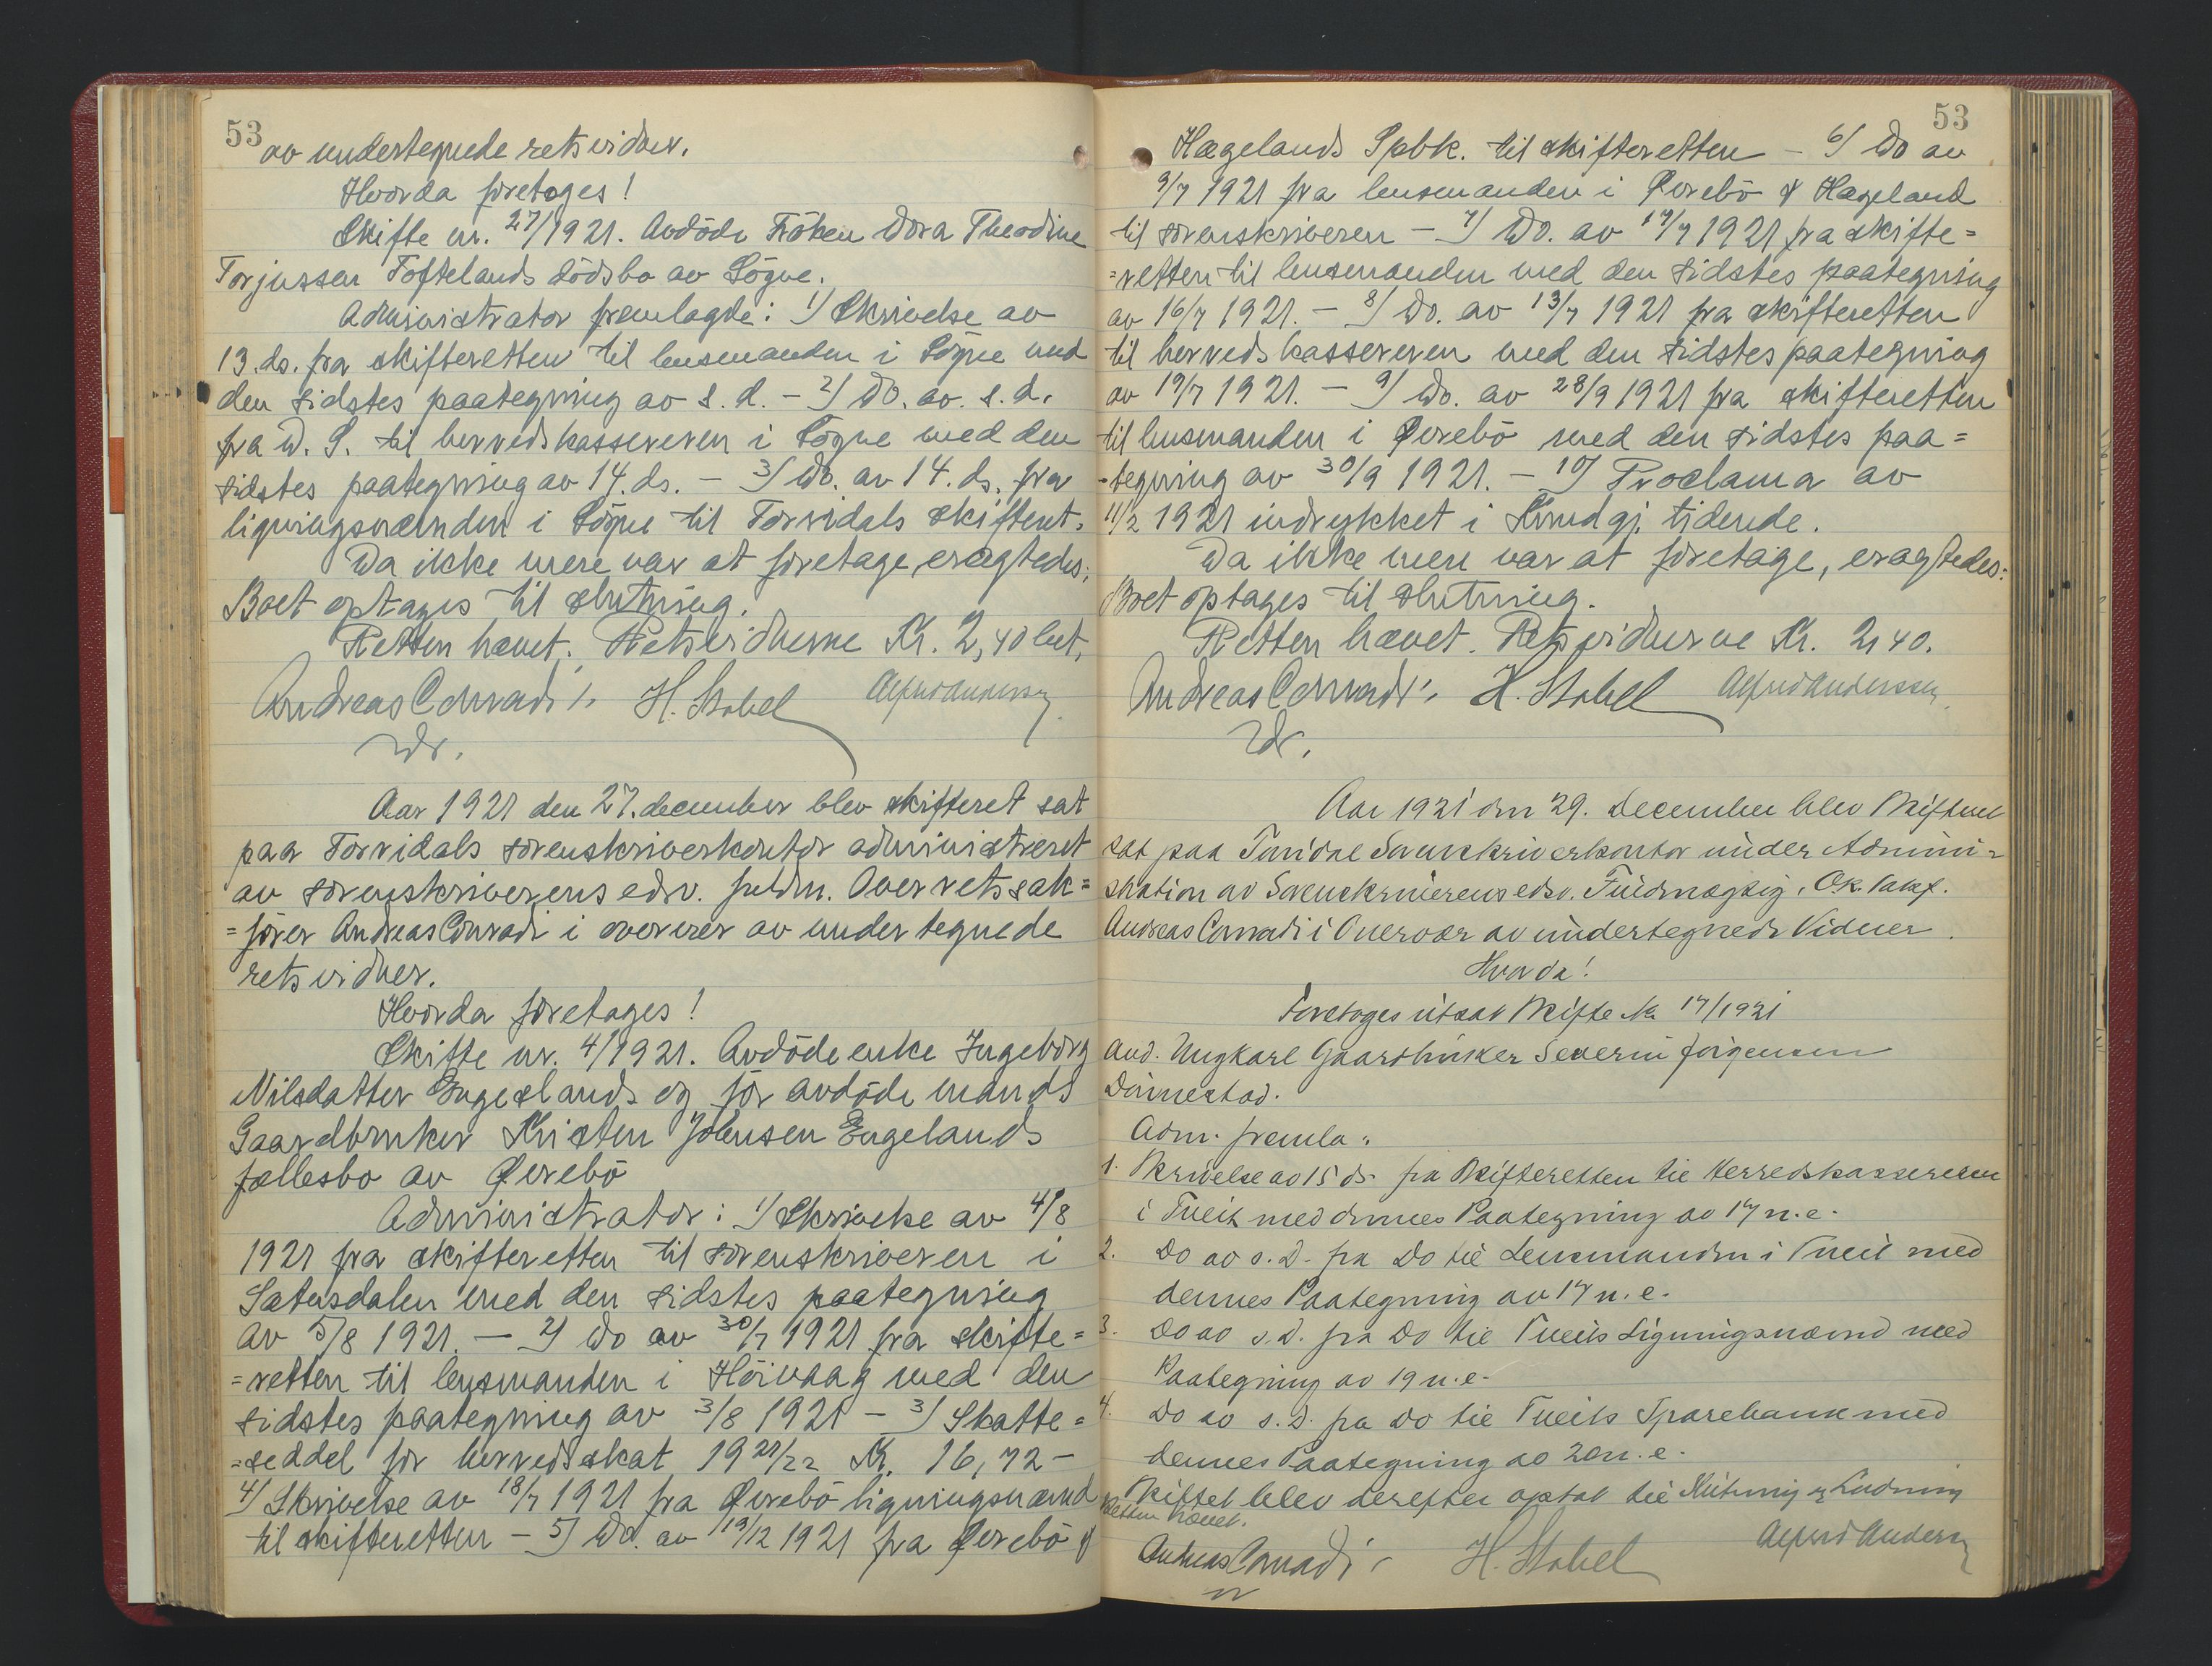 53
av undertegnede retsvidner.
Hvorda foretoges!
Skifte nr. 27/1921. Avdöde Fröken Dora Theodine
Torjussen Toftelands dödsbo av Sögne.
Administrator fremlagde: 1) Skrivelse av
13. ds. fra skifteretten til lensmanden i Sögne med
den sidstes paategning av s. d. - 2) Do. av s. d.
fra D. S. til herredskassereren i Sögne med den
sidstes paategning av 14. ds. - 3) Do. av 14. ds. fra
ligningsnævnden i Sögne til Torridals skifteret.
Da ikke mere var at foretage, eragtedes:
Boet optages til slutning.
Retten hævet. Retsvidnerne Kr. 2,40 bet.
Andreas Conradi. H. Stabel Alfred Anderssen
Aar 1921 den 27. december blev skifteret sat
paa Torridals sorenskriverkontor administreret
av sorenskriverens edsv. fuldm. Overretssak=
=förer Andreas Conradi i overvær av undertegnede
retsvidner.
Hvorda foretoges!
Skifte nr. 4/1921. Avdöde enke Ingeborg
Nilsdatter Engelands og för avdöde mands
Gaardbruker Kristen Johnsen Engelands
fællesbo av Överebö
Administrator: 1) Skrivelse av 4/8
1921 fra skifteretten til sorenskriveren i
Sætersdalen med den sidstes paategning
av 5/8 1921. - 2) Do av 30/7 1921 fra skifte=
=retten til lensmanden i Höivaag med den
sidstes paategning av 3/8 1921 - 3) Skatte=
=seddel for herredsskat 1921/22 Kr. 16,72 -
4) Skrivelse av 18/7 1921 fra Överebö ligningsnævnd
til skifteretten - 5) Do. av 19/12 1921 fra Överebö &
53
Hægelands Spbk. til skifteretten - 6) Do av
9/7 1921 fra lensmanden i Överebö & Hægeland
til sorenskriveren - 7) Do. av 14/7 1921 fra skifte=
=retten til lensmanden med den sidstes paategning
av 16/7 1921. - 8) Do. av 13/7 1921 fra skifteretten
til herredskassereren med den sidstes paategning
av 19/7 1921. - 9) Do. av 28/9 1921 fra skifteretten
til lensmanden i Överebö med den sidstes paa=
=tegning av 30/9 1921. - 10) Proclama av
11/2 1921 indrykket i Kundgj. tidende.
Da ikke mere var at foretage, eragtedes:
Boet optages til slutning.
Retten hævet. Retsvidnerne Kr. 2,40.
Andreas Conradi. H. Stabel Alfred Anderssen
Aar 1921 den 29. December blev Skifteret
sat paa Torridal Sorenskriverkontor under Admini=
stration av Sorenskriverens edsv. Fuldmægtig, O.r.sakf.
Andreas Conradi i Overvær av undertegnede Vidner.
Hvorda!
Foretoges utsat Skifte Nr 17/1921
avd. Ungkarl Gaardbruker Severin Jörgensen
Dönnestad.
Adm. fremla:
1. Skrivelse av 15 ds. fra Skifteretten til Herredskassereren
i Tveit med dennes Paategning av 17 n. e.
2. Do av s. D. fra Do til Lensmanden i Tveit med
dennes Paategning av 17 n. e.
3. Do av s. D. fra Do til Tveits Ligningsnævnd med
Paategning av 19 n. e.
4. Do av s. D. fra Do til Tveits Sparebank med
dennes Paategning av 20 n. e.
Skiftet blev derefter optat til Slutning og Lodning
Retten hævet.
Andreas Conradi. H. Stabel Alfred Anderssen